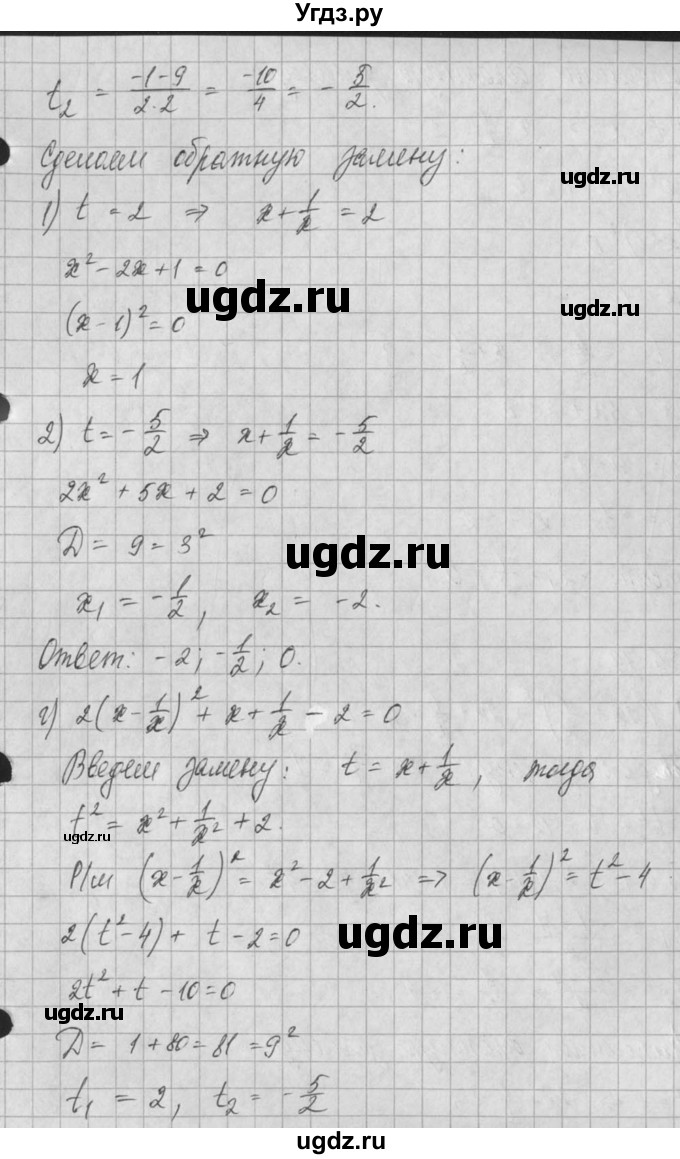 Угдз.ру
t₂ = (-1-9)/(2·2) = -10/4 = -5/2.
Сделаем обратную замену:
ugdz.ru
1) t = 2 ⇒ x + 1/x = 2
x² - 2x + 1 = 0
ugdz.ru
ugdz.ru
(x - 1)² = 0
x = 1
2) t = -5/2 ⇒ x + 1/x = -5/2
2x² + 5x + 2 = 0
Д = 9 = 3²
ugdz.ru
x₁ = -1/2, x₂ = -2.
Ответ: -2; -1/2; 0.
г) 2(x - 1/x)² + x + 1/x - 2 = 0
Введем замену: t = x + 1/x, тогда
t² = x² + 1/x² + 2.
ugdz.ru
Р/м (x - 1/x)² = x² - 2 + 1/x² ⇒ (x - 1/x)² = t² - 4
2(t² - 4) + t - 2 = 0
ugdz.ru
2t² + t - 10 = 0
ugdz.ru
Д = 1 + 80 = 81 = 9²
t₁ = 2, t₂ = -5/2
ugdz.ru